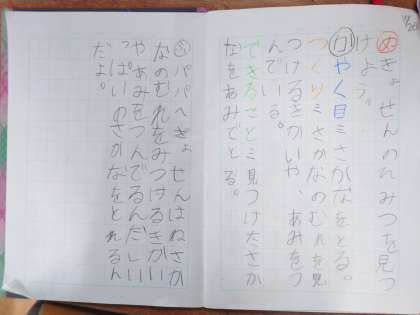 11/20
めぎょせんのひみつを見つ
けよう。
かやく目＝さかなをとる。
つくり＝さかなのむれを見
つけるきかいや、あみをつ
んでいる。
できること＝見つけたさか
なをあみでとる。
ふパパへぎょせんはねさか
なのむれをみつけるきかい
やあみをつんでるんだ。いい
っぱいのさかなをとれるん
だよ。